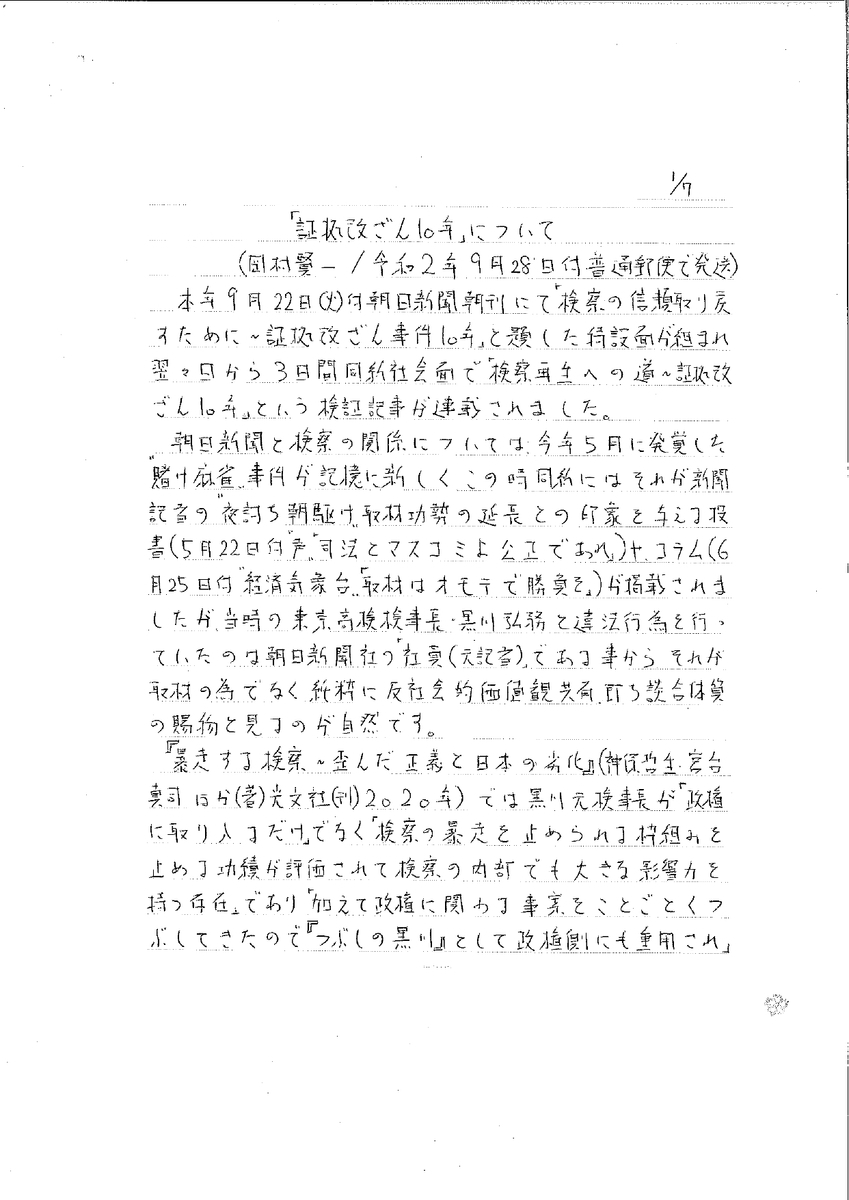 1/7
「証拠改ざん10年」について
(岡村賢一/令和2年9月28日付普通郵便で発送)
本年9月22日(火)付朝日新聞朝刊にて「検察の信頼取り戻
すために~証拠改ざん事件10年」と題した特設面が組まれ
翌々日から3日間同紙社会面で「検察再生への道~証拠改
ざん10年」という検証記事が連載されました。
朝日新聞と検察の関係については今年5月に発覚した
"賭け麻雀"事件が記憶に新しくこの時同紙にはそれが新聞
記者の"夜討ち朝駆け"取材功勢の延長との印象を与える投
書(5月22日付"声"「司法とマスコミよ公正であれ」)や、コラム(6
月25日付"経済気象台"「取材はオモテで勝負を」)が掲載されま
したが、当時の東京高検検事長・黒川弘務と違法行為を行っ
ていたのは朝日新聞社の「社員(元記者)」である事からそれが
取材の為でなく純粋に反社会的価値観共有、即ち談合体質
の賜物と見るのが自然です。
『暴走する検察~歪んだ正義と日本の劣化』(神保哲生・宮台
真司ほか(著)光文社(刊)2020年)では黒川元検事長が「政権
に取り入るだけ」でなく「検察の暴走を止められる枠組みを
止める功績が評価されて検察の内部でも大きな影響力を
持つ存在」であり「加えて政権に関わる事案をことごとくつ
ぶしてきたので『つぶしの黒川』として政権側にも重用され」